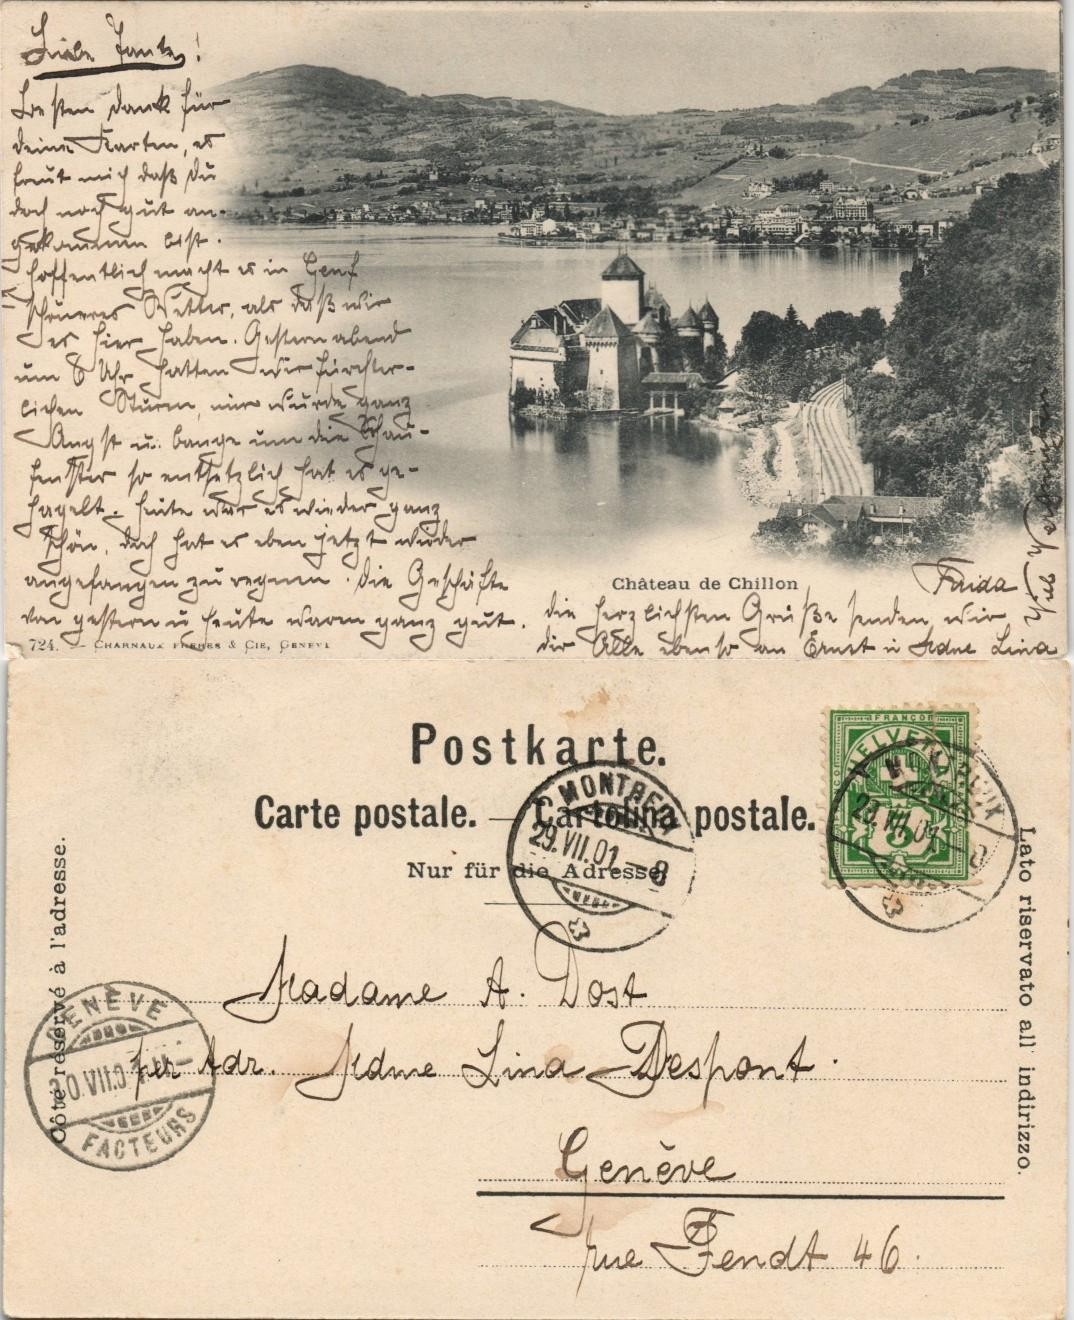 Liebe Tante!
Besten Dank für
deine Karten, es
freut mich daß Du
doch noch gut an-
gekommen bist.
Hoffentlich macht es in Genf
schöneres Wetter, als daß wir
es hier haben. Gestern abend
um 8 Uhr hatten wir fürchter-
lichen Sturm, mir wurde ganz
Angst u. bange um die Schau-
fenster so entsetzlich hat es ge-
hagelt. Heute war es wieder ganz
schön, doch hat es eben jetzt wieder
angefangen zu regnen. Die Geschäfte
von gestern u heute waren ganz gut.
Château de Chillon
Frida
die herzlichsten Grüße senden wir
dir Alle ebenso an Ernst u Mdme Lina
724. — CHARNAUX FRÈRES & CIE, GENÈVE
Postkarte.
Carte postale. — Cartolina postale.
Nur für die Adresse.
Côté réservé à l'adresse.
Lato riservato all' indirizzo.
FRANCO
HELVETIA
5
MONTREUX
29.VII.01–8
MONTREUX
29.VII.01–8
GENÈVE
30.VII.01
FACTEURS
Madame A. Dost
per Adr. Mdme Lina Despont.
Genève
rue Fendt 46.